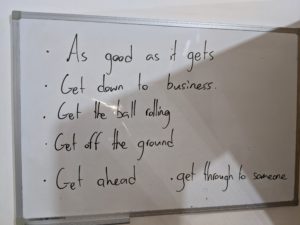 · As good as it gets
· Get down to business.
· Get the ball rolling
· Get off the ground
· Get ahead · get through to someone